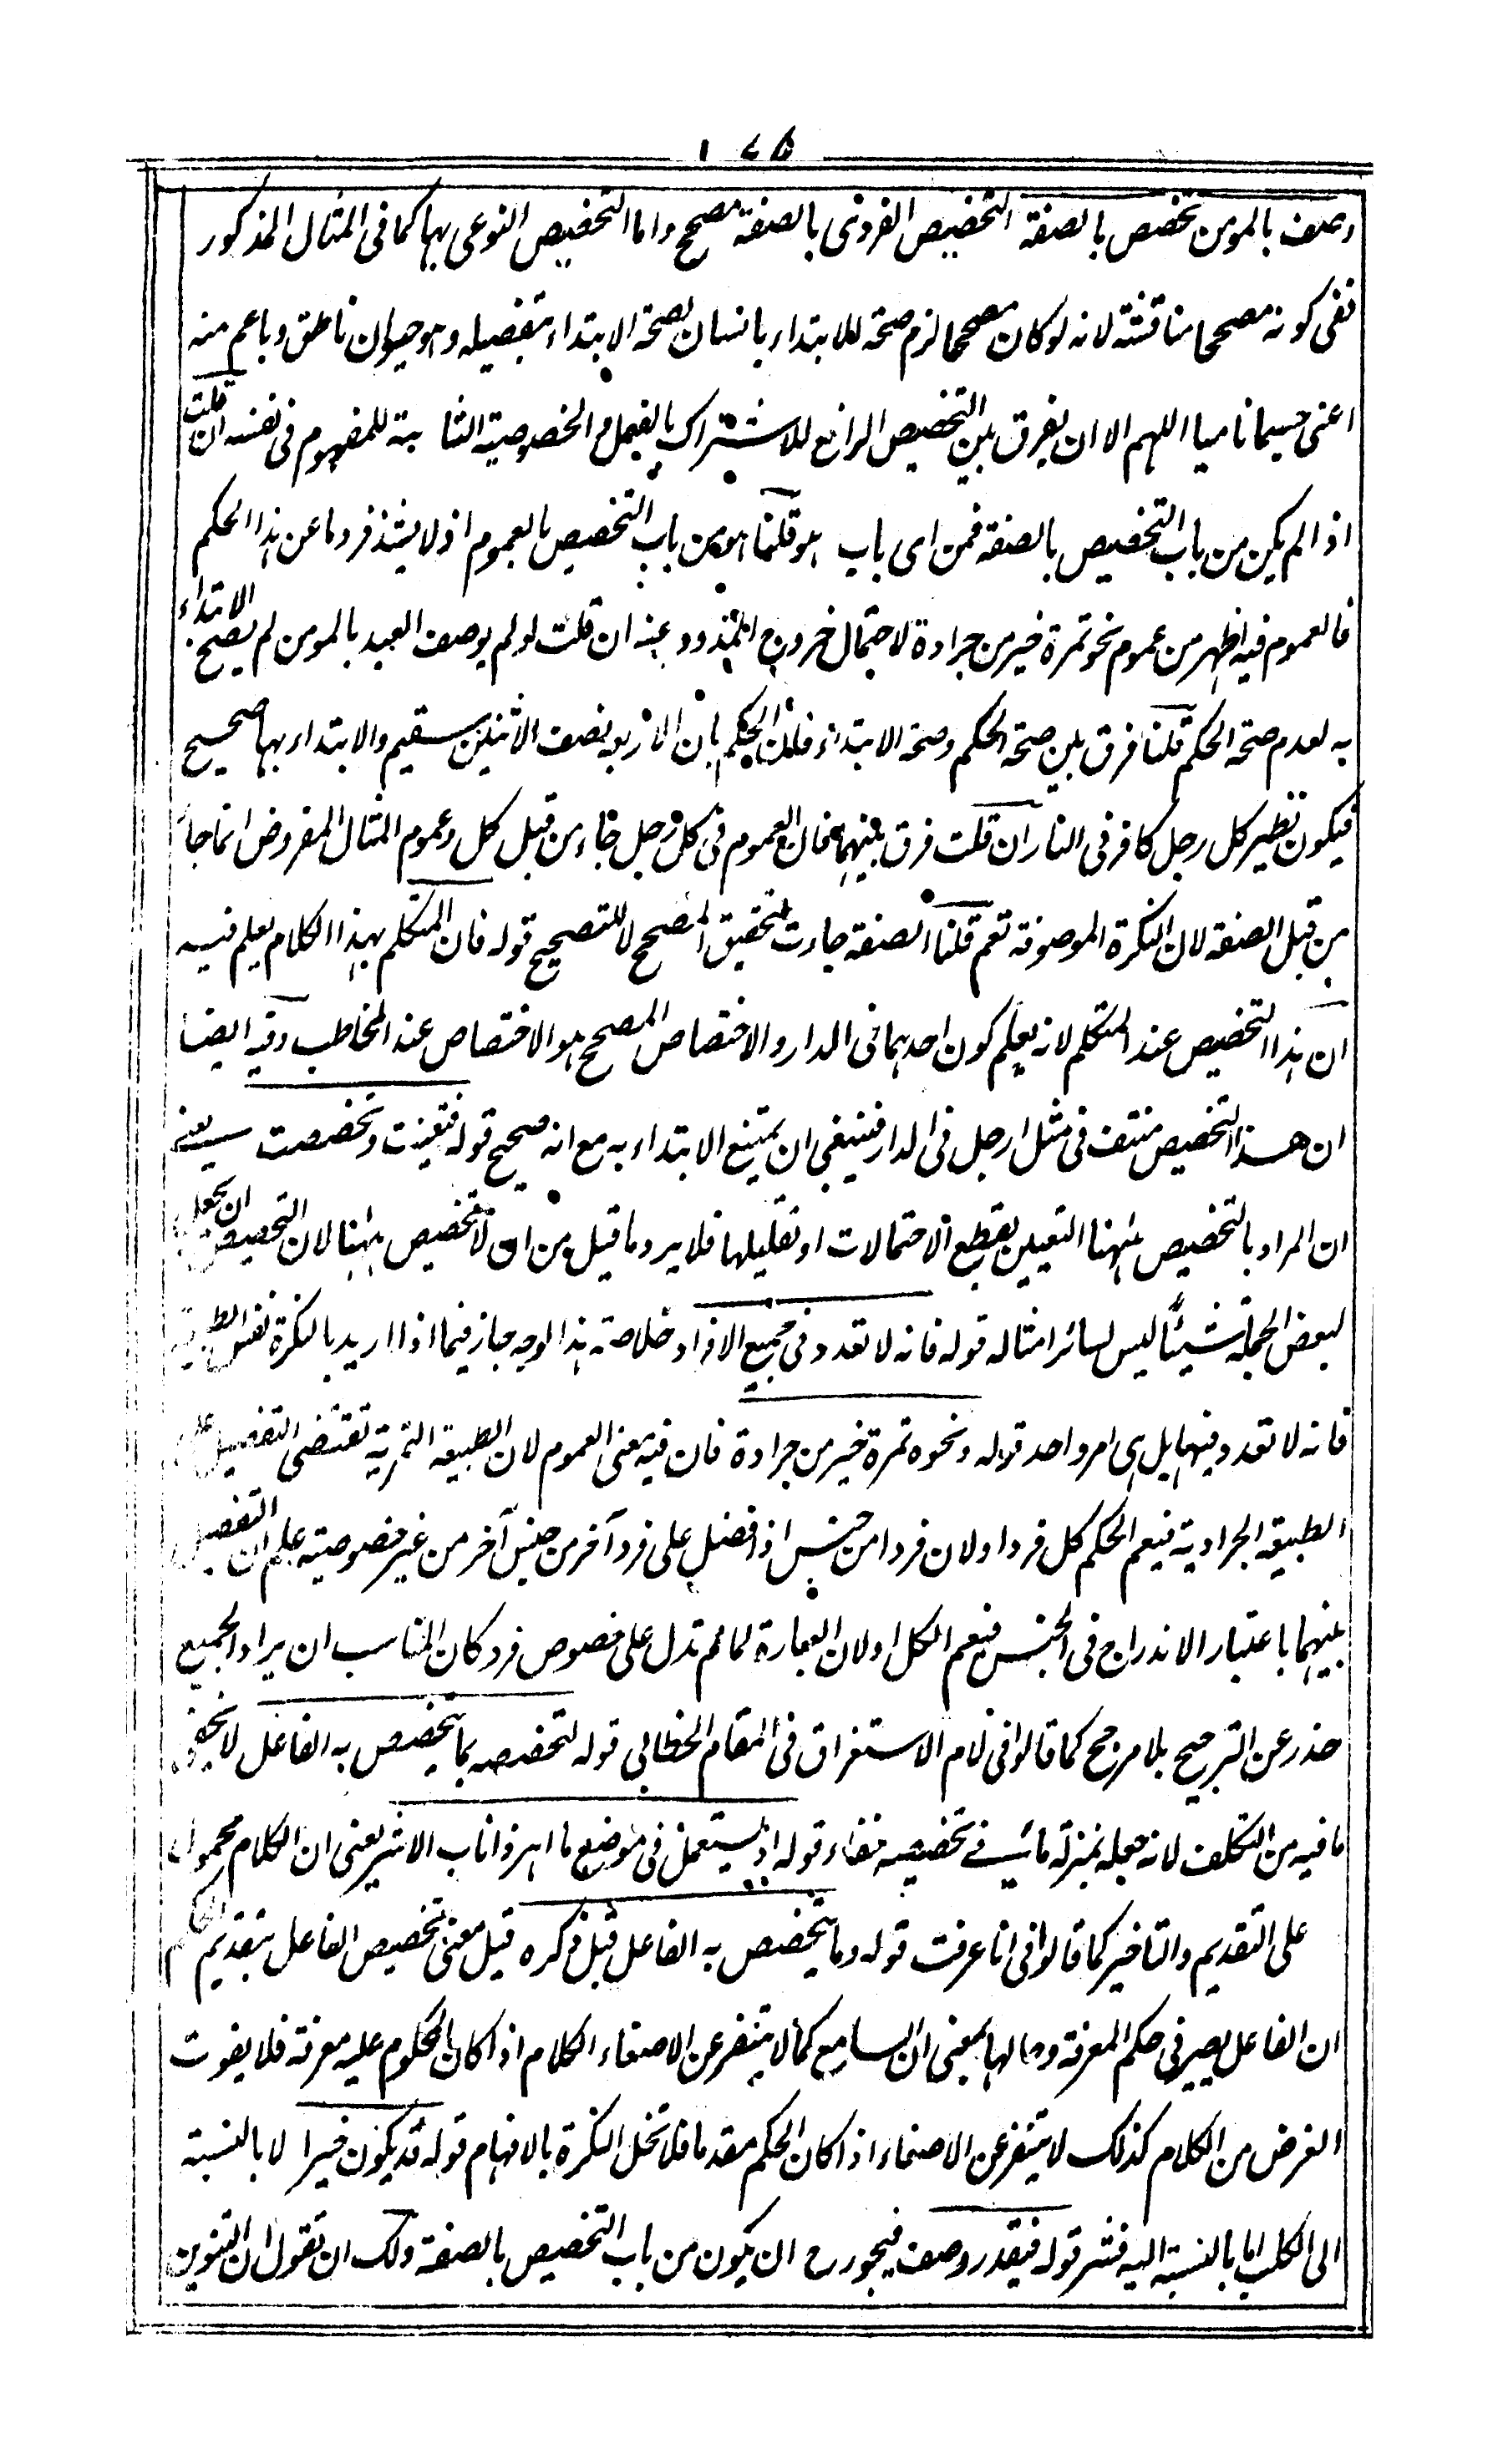 ١٧٥
وصف بالمومن تخصص بالصفة التخصيص الفردى بالصفة مصحح واما التخصيص النوعى بها كما فى المثال المذكور
ففى كونه مصححا مناقشة لانه لو كان مصححا لزم صحة للابتداء بانسان لصحة الابتداء بتفصيله وهو حيوان ناطق وباعم منه
اعنى جسما ناميا اللهم الا ان يفرق بين التخصيص الرافع للاشتراك بالفعل والخصوصية الثابتة للمفهوم فى نفسه ان قلت
اذا لم يكن من باب التخصيص بالصفة فمن اى باب هو قلنا هو من باب التخصيص بالعموم اذ لا يشذ فرد ما عن هذا الحكم
فالعموم فيه اظهر من عموم نحو تمرة خير من جرادة لاحتمال خروج الشذوذ عنه ان قلت لو لم يوصف العبد بالمومن لم يصح الابتداء
به لعدم صحة الحكم قلنا فرق بين صحة الحكم وصحة الابتداء فان الحكم بان الاربعة نصف الاثنين سقيم والابتداء بها صحيح
فيكون نظير كل رجل كافر فى النار ان قلت فرق بينهما فان العموم فى كل رجل جاء من قبل كل وعموم المثال المفروض انما جاء
من قبل الصفة لان النكرة الموصوفة تعم قلنا الصفة جاءت لتحقيق المصحح لا للتصحيح قوله فان المتكلم بهذا الكلام يعلم فيه
ان هذا التخصيص عند المتكلم لانه يعلم كون احدهما فى الدار والاختصاص المصحح هو الاختصاص عند المخاطب وفيه ايضا
ان هذا التخصيص منتف فى مثل ارجل فى الدار فينبغى ان يمتنع الابتداء به مع انه صحيح قوله فتعينت وتخصصت يعنى
ان المراد بالتخصيص ههنا التعيين بقطع الاحتمالات او تقليلها فلا يرد ما قيل من ان لا تخصيص ههنا لان التخصيص ان يجعل
لبعض الجملة شيئا ليس لسائر امثاله قوله فانه لا تعدد فى جميع الافراد خلاصة هذا الوجه جاز فيما اذا اريد بالنكرة نفس الطبيعة
فانه لا تعدد فيها بل هى امر واحد قوله ونحوه تمرة خير من جرادة فان فيه معنى العموم لان الطبيعة التمرية تقتضى التفضيل على
الطبيعة الجرادية فيعم الحكم كل فرد او لان فردا من جنس اذا فضل على فرد آخر من جنس آخر من غير خصوصية علم ان التفضيل
بينهما باعتبار الاندراج فى الجنس فيعم الكل او لان العبارة لما لم تدل على خصوص فرد كان المناسب ان يراد الجميع
حذر عن الترجيح بلا مرجح كما قالوا فى لام الاستغراق فى المقام الخطابى قوله لتخصصه بما يتخصص به الفاعل لا يخفى
ما فيه من التكلف لانه جعله بمنزلة ما فى تخصيصه خفاء قوله اذ يستعمل فى موضع ما اهر ذا ناب الا شر يعنى ان الكلام محمول
على التقديم والتاخير كما قالوا فى انا عرفت قوله وما يتخصص به الفاعل قبل ذكره قيل معنى تخصيص الفاعل بتقديم الحكم
ان الفاعل يصير فى حكم المعرفة ومالها بمعنى ان السامع كما لا يتنفر عن الاصغاء الكلام اذا كان المحكوم عليه معرفة فلا يفوت
الغرض من الكلام كذلك لا يتنفر عن الاصغاء اذا كان الحكم مقدما فلا تخل النكرة بالافهام قوله قد يكون خيرا لا بالنسبة
الى الكلب اما بالنسبة اليه فشر قوله فيقدر وصف فيجوز ح ان يكون من باب التخصيص بالصفة ولك ان تقول ان التنوين